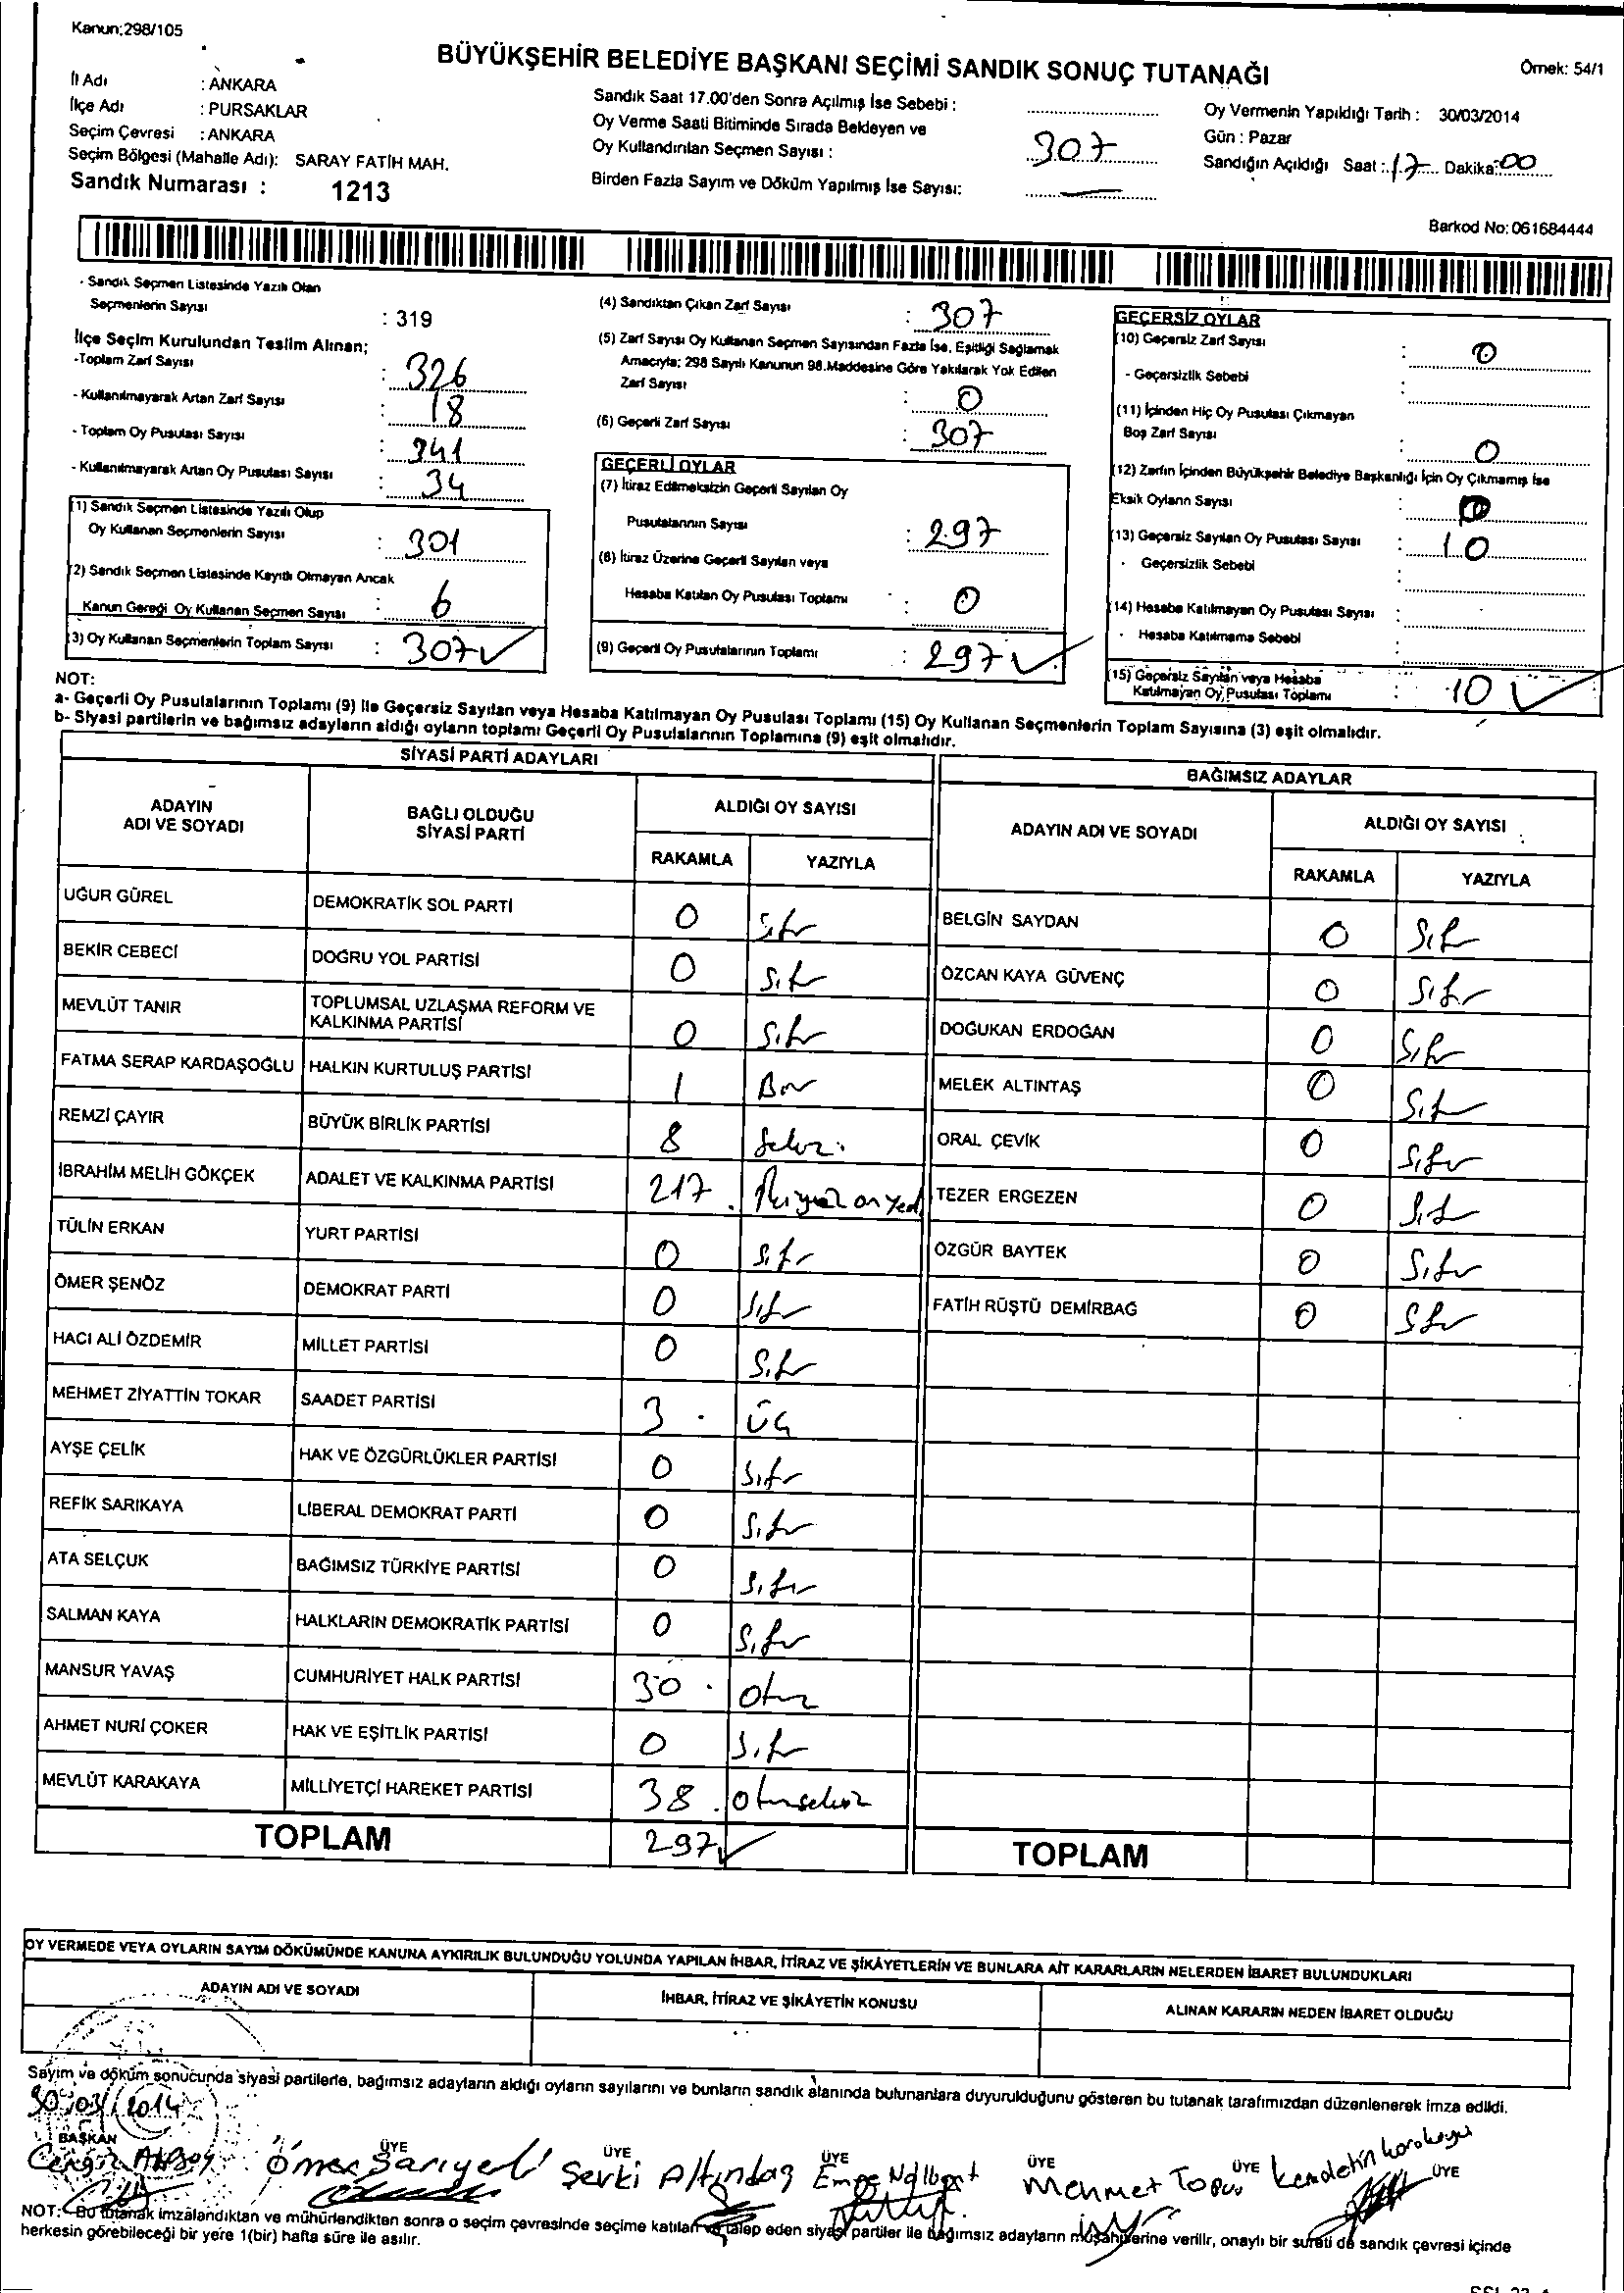 Kanun:298/105
BÜYÜKŞEHİR BELEDİYE BAŞKANI SEÇİMİ SANDIK SONUÇ TUTANAĞI
Örnek: 54/1
İl Adı : ANKARA
İlçe Adı : PURSAKLAR
Seçim Çevresi : ANKARA
Seçim Bölgesi (Mahalle Adı): SARAY FATİH MAH.
Sandık Numarası : 1213
Sandık Saat 17.00'den Sonra Açılmış İse Sebebi :
Oy Verme Saati Bitiminde Sırada Bekleyen ve
Oy Kullandırılan Seçmen Sayısı : 307
Birden Fazla Sayım ve Döküm Yapılmış İse Sayısı: —
Oy Vermenin Yapıldığı Tarih : 30/03/2014
Gün : Pazar
Sandığın Açıldığı Saat : 17 Dakika: 00
Barkod No: 061684444
- Sandık Seçmen Listesinde Yazılı Olan
Seçmenlerin Sayısı : 319
İlçe Seçim Kurulundan Teslim Alınan;
-Toplam Zarf Sayısı : 326
- Kullanılmayarak Artan Zarf Sayısı : 18
- Toplam Oy Pusulası Sayısı : 341
- Kullanılmayarak Artan Oy Pusulası Sayısı : 34
(1) Sandık Seçmen Listesinde Yazılı Olup
Oy Kullanan Seçmenlerin Sayısı : 301
(2) Sandık Seçmen Listesinde Kayıtlı Olmayan Ancak
Kanun Gereği Oy Kullanan Seçmen Sayısı : 6
(3) Oy Kullanan Seçmenlerin Toplam Sayısı : 307 ✓
(4) Sandıktan Çıkan Zarf Sayısı : 307
(5) Zarf Sayısı Oy Kullanan Seçmen Sayısından Fazla İse, Eşitliği Sağlamak
Amacıyla; 298 Sayılı Kanunun 98.Maddesine Göre Yakılarak Yok Edilen
Zarf Sayısı : 0
(6) Geçerli Zarf Sayısı : 307
GEÇERLİ OYLAR
(7) İtiraz Edilmeksizin Geçerli Sayılan Oy
Pusulalarının Sayısı : 297
(8) İtiraz Üzerine Geçerli Sayılan veya
Hesaba Katılan Oy Pusulası Toplamı : 0
(9) Geçerli Oy Pusulalarının Toplamı : 297 ✓
GEÇERSİZ OYLAR
(10) Geçersiz Zarf Sayısı : 0
- Geçersizlik Sebebi :
(11) İçinden Hiç Oy Pusulası Çıkmayan
Boş Zarf Sayısı : 0
(12) Zarfın İçinden Büyükşehir Belediye Başkanlığı İçin Oy Çıkmamış İse
Eksik Oyların Sayısı : 0
(13) Geçersiz Sayılan Oy Pusulası Sayısı : 10
- Geçersizlik Sebebi :
(14) Hesaba Katılmayan Oy Pusulası Sayısı :
- Hesaba Katılmama Sebebi :
(15) Geçersiz Sayılan veya Hesaba
Katılmayan Oy Pusulası Toplamı : 10 ✓
NOT:
a- Geçerli Oy Pusulalarının Toplamı (9) ile Geçersiz Sayılan veya Hesaba Katılmayan Oy Pusulası Toplamı (15) Oy Kullanan Seçmenlerin Toplam Sayısına (3) eşit olmalıdır.
b- Siyasi partilerin ve bağımsız adayların aldığı oyların toplamı Geçerli Oy Pusulalarının Toplamına (9) eşit olmalıdır.
SİYASİ PARTİ ADAYLARI
ADAYIN ADI VE SOYADI BAĞLI OLDUĞU SİYASİ PARTİ ALDIĞI OY SAYISI
RAKAMLA YAZIYLA
UĞUR GÜREL DEMOKRATİK SOL PARTİ 0 Sıfır
BEKİR CEBECİ DOĞRU YOL PARTİSİ 0 Sıfır
MEVLÜT TANIR TOPLUMSAL UZLAŞMA REFORM VE KALKINMA PARTİSİ 0 Sıfır
FATMA SERAP KARDAŞOĞLU HALKIN KURTULUŞ PARTİSİ 1 Bir
REMZİ ÇAYIR BÜYÜK BİRLİK PARTİSİ 8 Sekiz
İBRAHİM MELİH GÖKÇEK ADALET VE KALKINMA PARTİSİ 217 İkiyüz on yedi
TÜLİN ERKAN YURT PARTİSİ 0 Sıfır
ÖMER ŞENÖZ DEMOKRAT PARTİ 0 Sıfır
HACI ALİ ÖZDEMİR MİLLET PARTİSİ 0 Sıfır
MEHMET ZİYATTİN TOKAR SAADET PARTİSİ 3 Üç
AYŞE ÇELİK HAK VE ÖZGÜRLÜKLER PARTİSİ 0 Sıfır
REFİK SARIKAYA LİBERAL DEMOKRAT PARTİ 0 Sıfır
ATA SELÇUK BAĞIMSIZ TÜRKİYE PARTİSİ 0 Sıfır
SALMAN KAYA HALKLARIN DEMOKRATİK PARTİSİ 0 Sıfır
MANSUR YAVAŞ CUMHURİYET HALK PARTİSİ 30 Otuz
AHMET NURİ ÇOKER HAK VE EŞİTLİK PARTİSİ 0 Sıfır
MEVLÜT KARAKAYA MİLLİYETÇİ HAREKET PARTİSİ 38 Otuzsekiz
TOPLAM 297 ✓
BAĞIMSIZ ADAYLAR
ADAYIN ADI VE SOYADI ALDIĞI OY SAYISI
RAKAMLA YAZIYLA
BELGİN SAYDAN 0 Sıfır
ÖZCAN KAYA GÜVENÇ 0 Sıfır
DOĞUKAN ERDOĞAN 0 Sıfır
MELEK ALTINTAŞ 0 Sıfır
ORAL ÇEVİK 0 Sıfır
TEZER ERGEZEN 0 Sıfır
ÖZGÜR BAYTEK 0 Sıfır
FATİH RÜŞTÜ DEMİRBAĞ 0 Sıfır
TOPLAM
OY VERMEDE VEYA OYLARIN SAYIM DÖKÜMÜNDE KANUNA AYKIRILIK BULUNDUĞU YOLUNDA YAPILAN İHBAR, İTİRAZ VE ŞİKÂYETLERİN VE BUNLARA AİT KARARLARIN NELERDEN İBARET BULUNDUKLARI
ADAYIN ADI VE SOYADI İHBAR, İTİRAZ VE ŞİKÂYETİN KONUSU ALINAN KARARIN NEDEN İBARET OLDUĞU
Sayım ve döküm sonucunda siyasi partilerle, bağımsız adayların aldığı oyların sayılarını ve bunların sandık alanında bulunanlara duyurulduğunu gösteren bu tutanak tarafımızdan düzenlenerek imza edildi.
30/03/2014
BAŞKAN ÜYE ÜYE ÜYE ÜYE ÜYE ÜYE
Cengiz Ömer Sarıyerli Şevki Altındağ Emre Nalbant Mehmet Topuz
NOT: Bu tutanak imzalandıktan ve mühürlendikten sonra o seçim çevresinde seçime katılan ve talep eden siyasi partiler ile bağımsız adayların müşahitlerine verilir, onaylı bir sureti de sandık çevresi içinde
herkesin görebileceği bir yere 1(bir) hafta süre ile asılır.